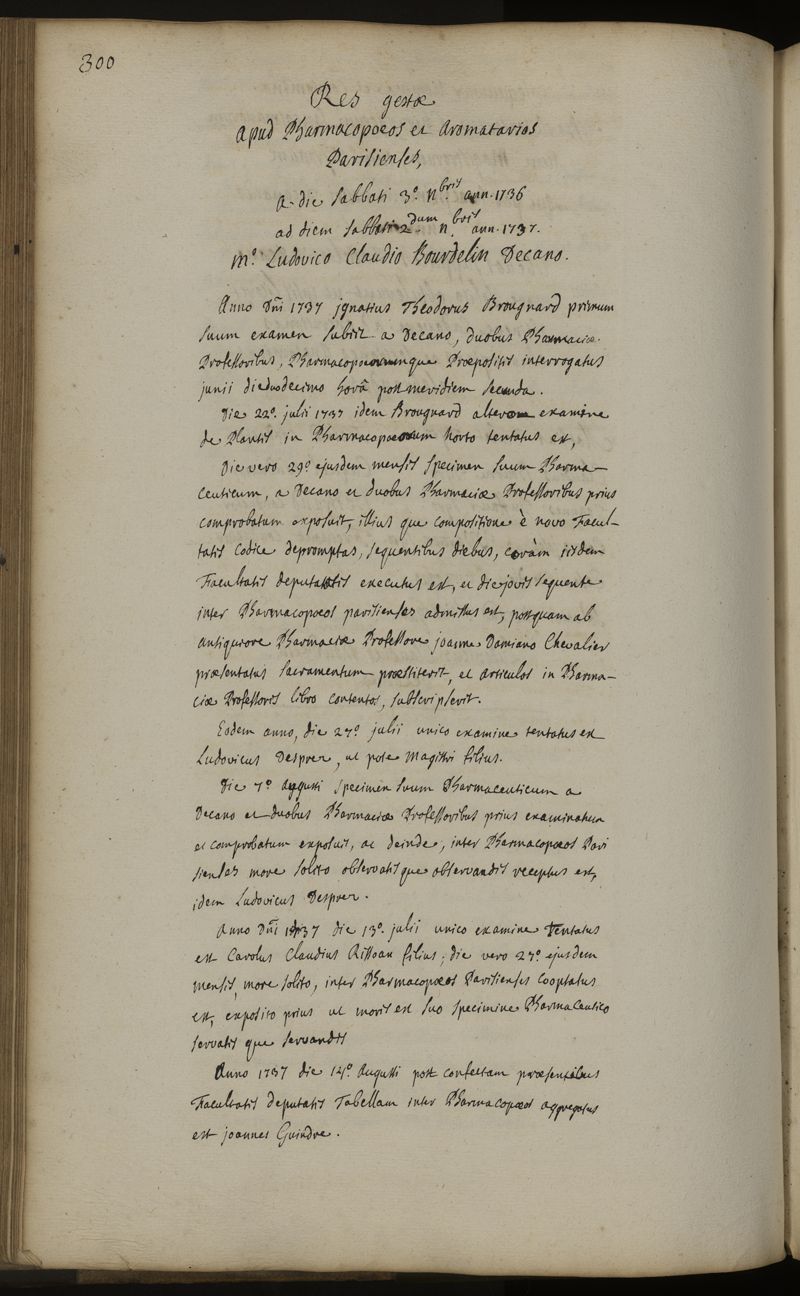 300
Res gestæ
apud Pharmacopoeos et Aromatarios
Parisienses,
a die Sabbati 3°. Nbris ann. 1736
ad diem Sabbati 2dum Nbris ann. 1737.
M°. Ludovico Claudio Bourdelin Decano.
Anno Dni 1737 ignatius Theodorus Brougnard primum
suum examen subiit a Decano, duobus Pharmaciæ
Professoribus, Pharmacopoeorumque Præpositis interrogatus
junii die duodecimo horâ post meridiem secunda.
Die 22°. julii 1737 idem Brougnard altero examine
de Plantis in Pharmacopoeorum horto tentatus est,
Die vero 29° ejusdem mensis specimen suum Pharma-
ceuticum, a Decano et duobus Pharmaciæ Professoribus prius
comprobatum exposuit, illius que compositione è novo Facul-
tatis Codice depromptas, sequentibus diebus, coràm iisdem
Facultatis deputatis executus est, et die jovis sequente
inter Pharmacopoeos parisienses admissus est, postquam ab
antiquiore Pharmaciæ Professore joanne Damiano Chevalier
præsentatus sacramentum præstiterit, et articulos in Pharma-
ciæ Professoris libro contentos, subscripserit.
Eodem anno, die 27° julii unico examine tentatus est
Ludovicus Desprez, ut pote Magistri filius.
Die 7° Augusti specimen suum Pharmaceuticum a
Decano et duobus Pharmaciæ Professoribus prius examinatum
et comprobatum exposuit, ac deinde, inter Pharmacopoeos Pari
sienses more solito observatis que observandis receptus est,
idem Ludovicus Desprez.
Anno Dni 1737 die 13°. julii unico examine tentatus
est Carolus Claudius Rissoan filius; die vero 27° ejusdem
mensis, more solito, inter Pharmacopoeos Parisienses cooptatus
est, exposito prius ut moris est suo specimine Pharmaceutico
servatis que servandis
Anno 1737 die 14°. Augusti post confectam præsentibus
Facultatis deputatis Tabellam inter Pharmacopoeos aggregatus
est joannes Guindre.